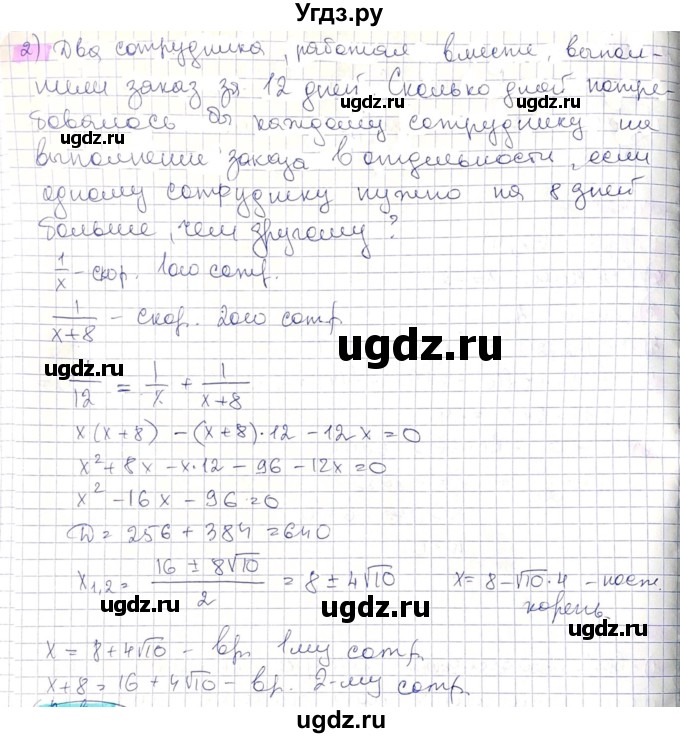 Угдз.ру
2) Два сотрудника, работая вместе, выпол-
нили заказ за 12 дней. Сколько дней потре-
бовалось бы каждому сотруднику на
выполнение заказа в отдельности, если
одному сотруднику нужно на 8 дней
больше, чем другому?
1/x - скор. 1ого сотр.
1/(x+8) - скор. 2ого сотр.
1/12 = 1/x + 1/(x+8)
x(x+8) - (x+8)·12 - 12x = 0
x² + 8x - x·12 - 96 - 12x = 0
x² - 16x - 96 = 0
D = 256 + 384 = 640
x₁,₂ = (16 ± 8√10)/2 = 8 ± 4√10 x = 8 - √10·4 - пост.
корень
x = 8 + 4√10 - вр. 1му сотр.
x+8 = 16 + 4√10 - вр. 2-му сотр.
ugdz.ru
ugdz.ru
ugdz.ru
ugdz.ru
ugdz.ru
ugdz.ru
ugdz.ru
ugdz.ru
ugdz.ru
ugdz.ru
ugdz.ru
ugdz.ru
ugdz.ru